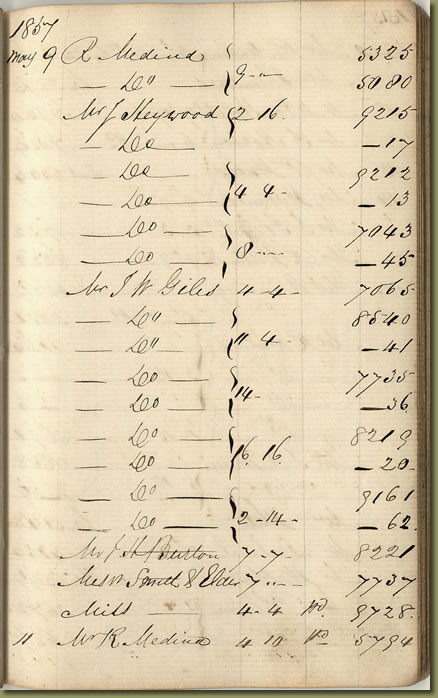 1857
May 9 R Medina 5325
— Do — 9 - — 5080
Mr J Heywood 2 16. 9215
— Do — — 17
— Do — 9212
— Do — 4 4 - — 13
— Do — 7043
— Do — 8 - — — 45
Mr J W Giles 4 - 4 - 7065
— Do — 8540
— Do — 11 4 - — 41
— Do — 7735
— Do — 14 - — 36
— Do — 8219
— Do — 16. 16. — 20 -
— Do — 9161
— Do — 2 - 14 - — 62.
Mr J H 7 - 7 - 8221
Messrs Smith & Elder 7 - — 7737
Mills — 4 - 4 9728.
11 Mr R Medina 4 10 5794